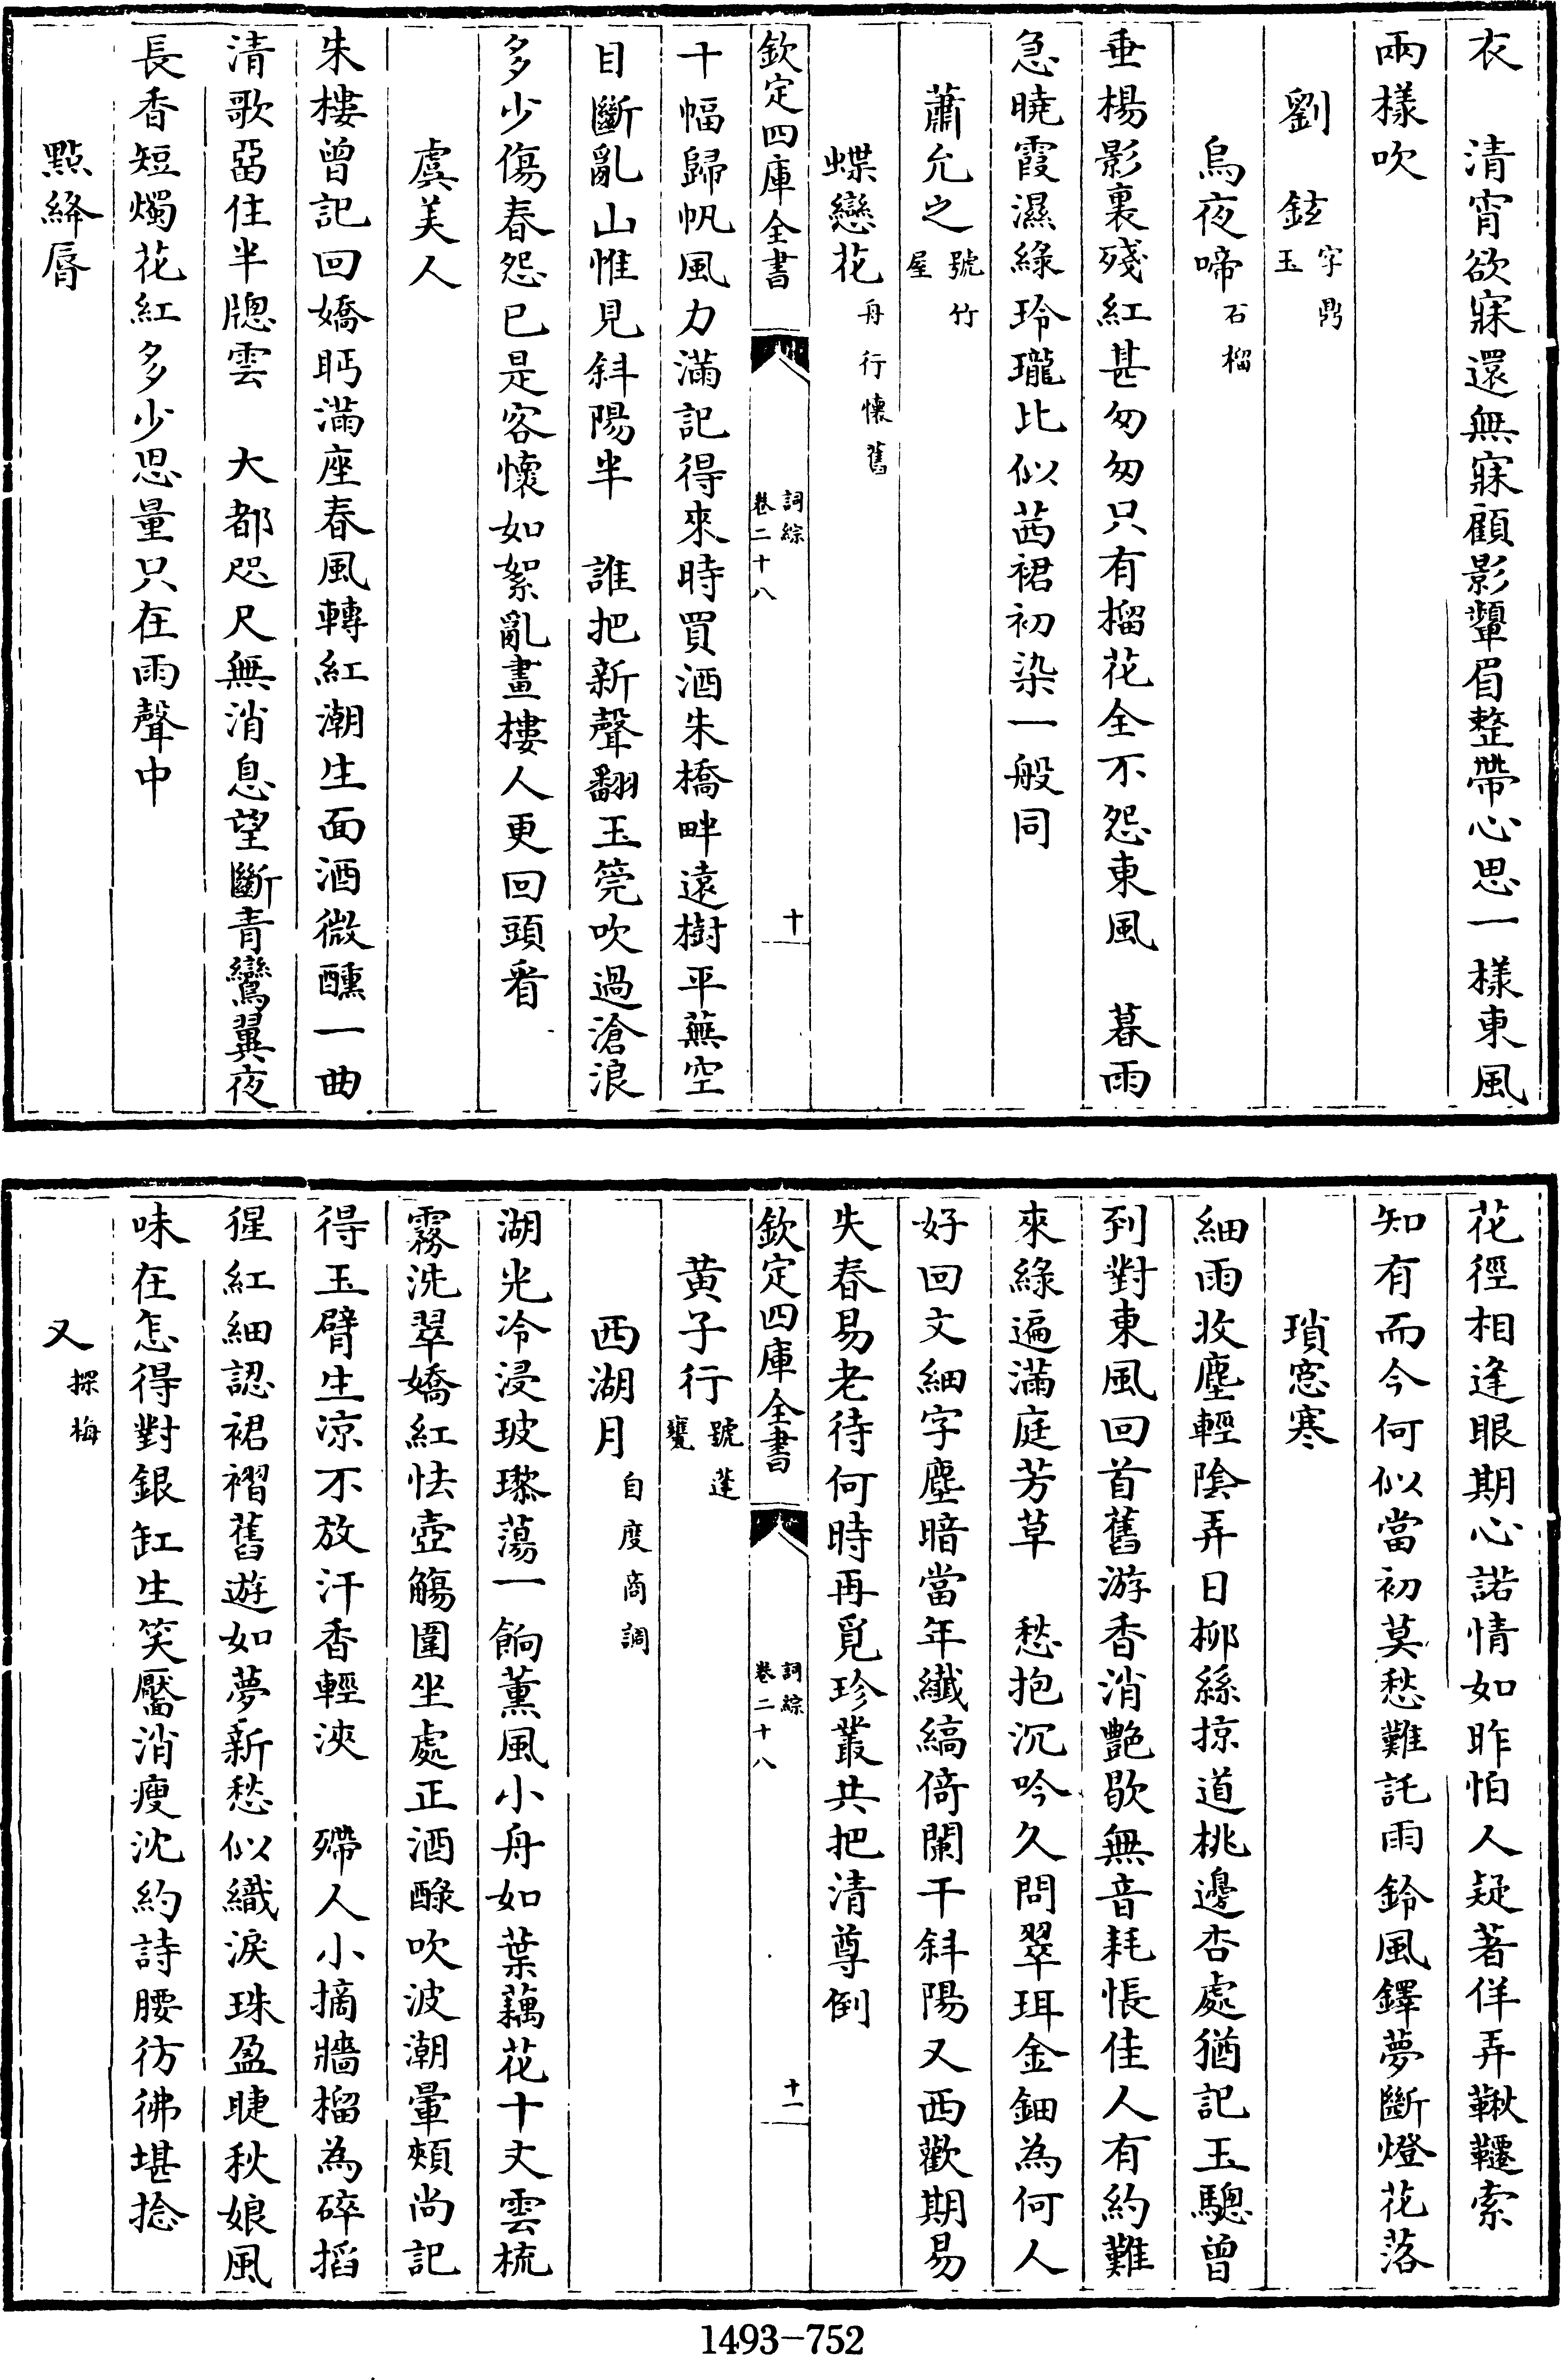 衣　清宵欲寐還無寐顧影顰眉整帶心思一樣東風
兩樣吹
劉　鉉字鼎玉
烏夜啼石榴
垂楊影裏殘紅甚匆匆只有榴花全不怨東風　暮雨
急曉霞濕綠玲瓏比似茜裙初染一般同
蕭允之號竹屋
蝶戀花舟行懷舊
欽定四庫全書
詞綜
卷二十八
十
十幅歸帆風力滿記得來時買酒朱橋畔遠樹平蕪空
目斷亂山惟見斜陽半　誰把新聲翻玉筦吹過滄浪
多少傷春怨已是客懷如絮亂畫樓人更回頭看
虞美人
朱樓曾記回嬌眄滿座春風轉紅潮生面酒微醺一曲
清歌留住半牕雲　大都咫尺無消息望斷青鸞翼夜
長香短燭花紅多少思量只在雨聲中
點絳脣
花徑相逢眼期心諾情如昨怕人疑著佯弄鞦韆索
知有而今何似當初莫愁難託雨鈴風鐸夢斷燈花落
瑣窓寒
細雨收塵輕陰弄日柳絲掠道桃邊杏處猶記玉驄曾
到對東風回首舊游香消艷歇無音耗悵佳人有約難
來綠遍滿庭芳草　愁抱沉吟久問翠珥金鈿為何人
好回文細字塵暗當年纖縞倚闌干斜陽又西歡期易
失春易老待何時再覓珍叢共把清尊倒
欽定四庫全書
詞綜
卷二十八
十一
黄子行號蓬甕
西湖月自度商調
湖光冷浸玻瓈蕩一餉薰風小舟如葉藕花十丈雲梳
霧洗翠嬌紅怯壺觴圍坐處正酒醁吹波潮暈頰尚記
得玉臂生凉不放汗香輕浹　殢人小摘牆榴為碎掐
猩紅細認裙褶舊遊如夢新愁似織淚珠盈睫秋娘風
味在怎得對銀缸生笑靨消瘦沈約詩腰彷彿堪捻
又探梅
1493-752